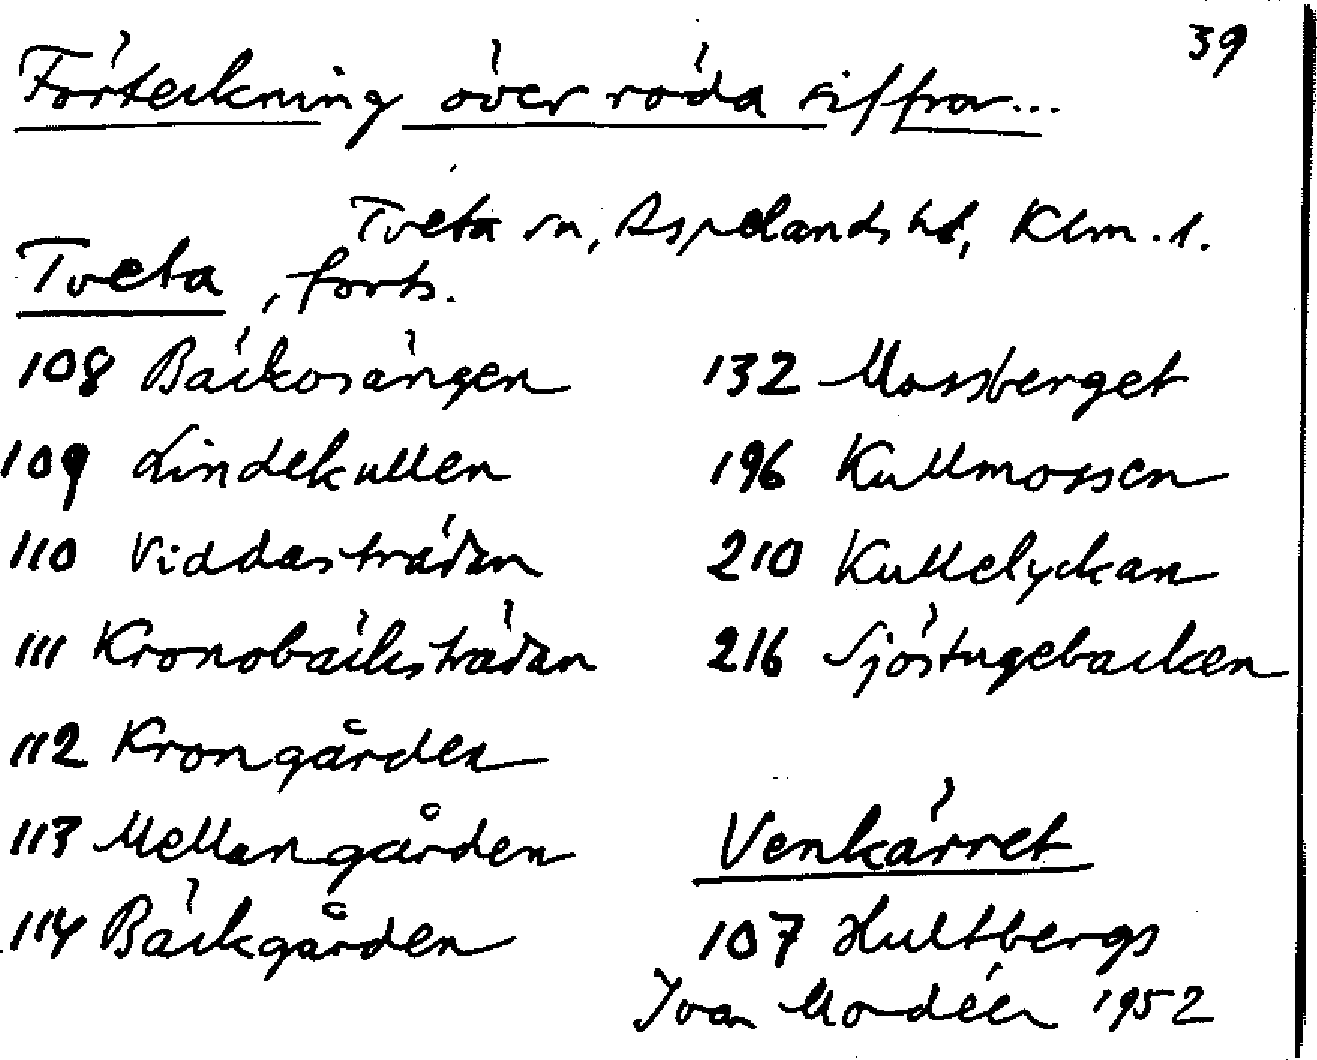 39
Förteckning över röda siffror...
Tveta sn, Aspelands hd, Klm. l.
Tveta, forts.
108 Bäckosängen
109 Lindekullen
110 Viddasträdan
111 Kronobäcksträdan
112 Krongården
113 Mellangården
114 Bäckgården
132 Mossberget
196 Kullmossen
210 Kullelyckan
216 Sjöstugebacken
Venkärret
107 Hultbergs
Ivar Modéer 1952